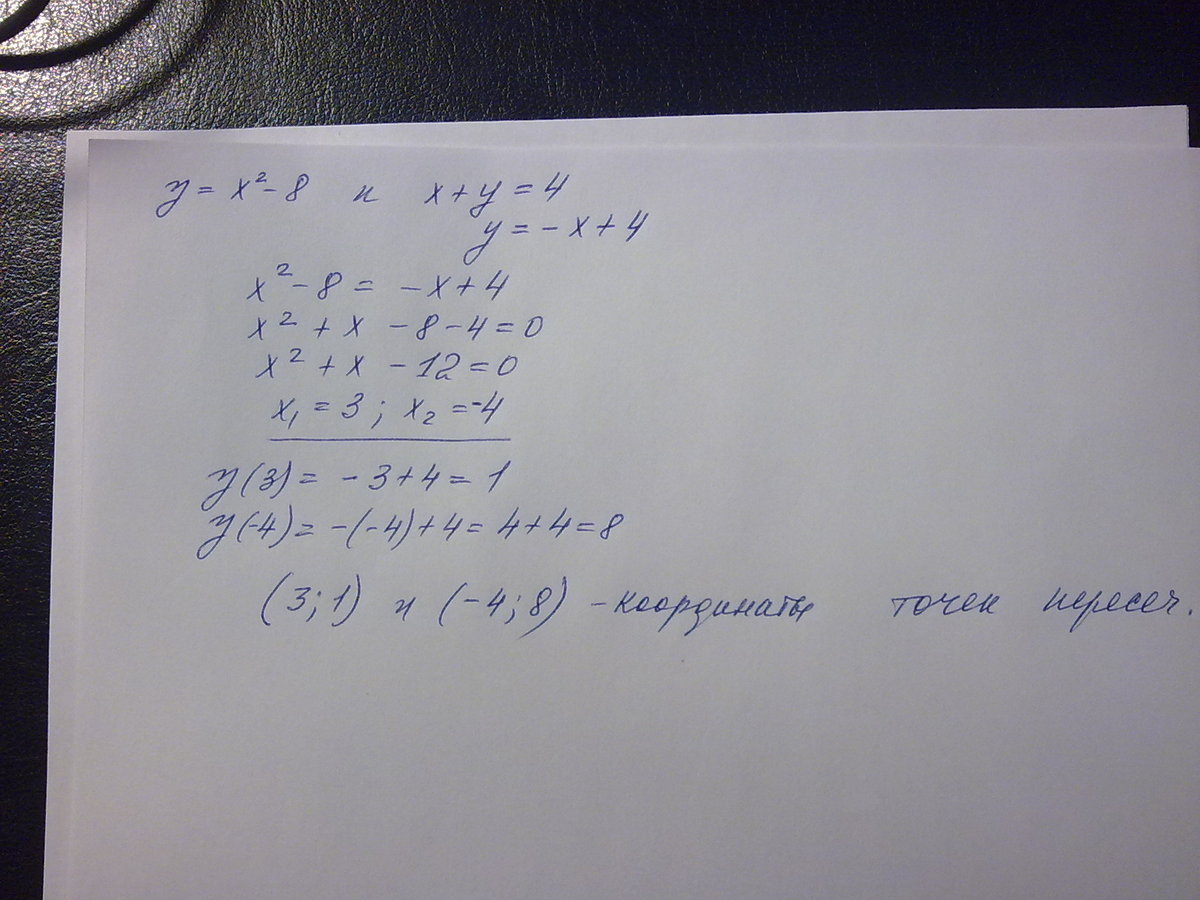 y = x² - 8 и x + y = 4
y = - x + 4
x² - 8 = - x + 4
x² + x - 8 - 4 = 0
x² + x - 12 = 0
x₁ = 3 ; x₂ = -4
y(3) = - 3 + 4 = 1
y(-4) = -(-4) + 4 = 4 + 4 = 8
(3; 1) и (-4; 8) - координаты точек пересеч.